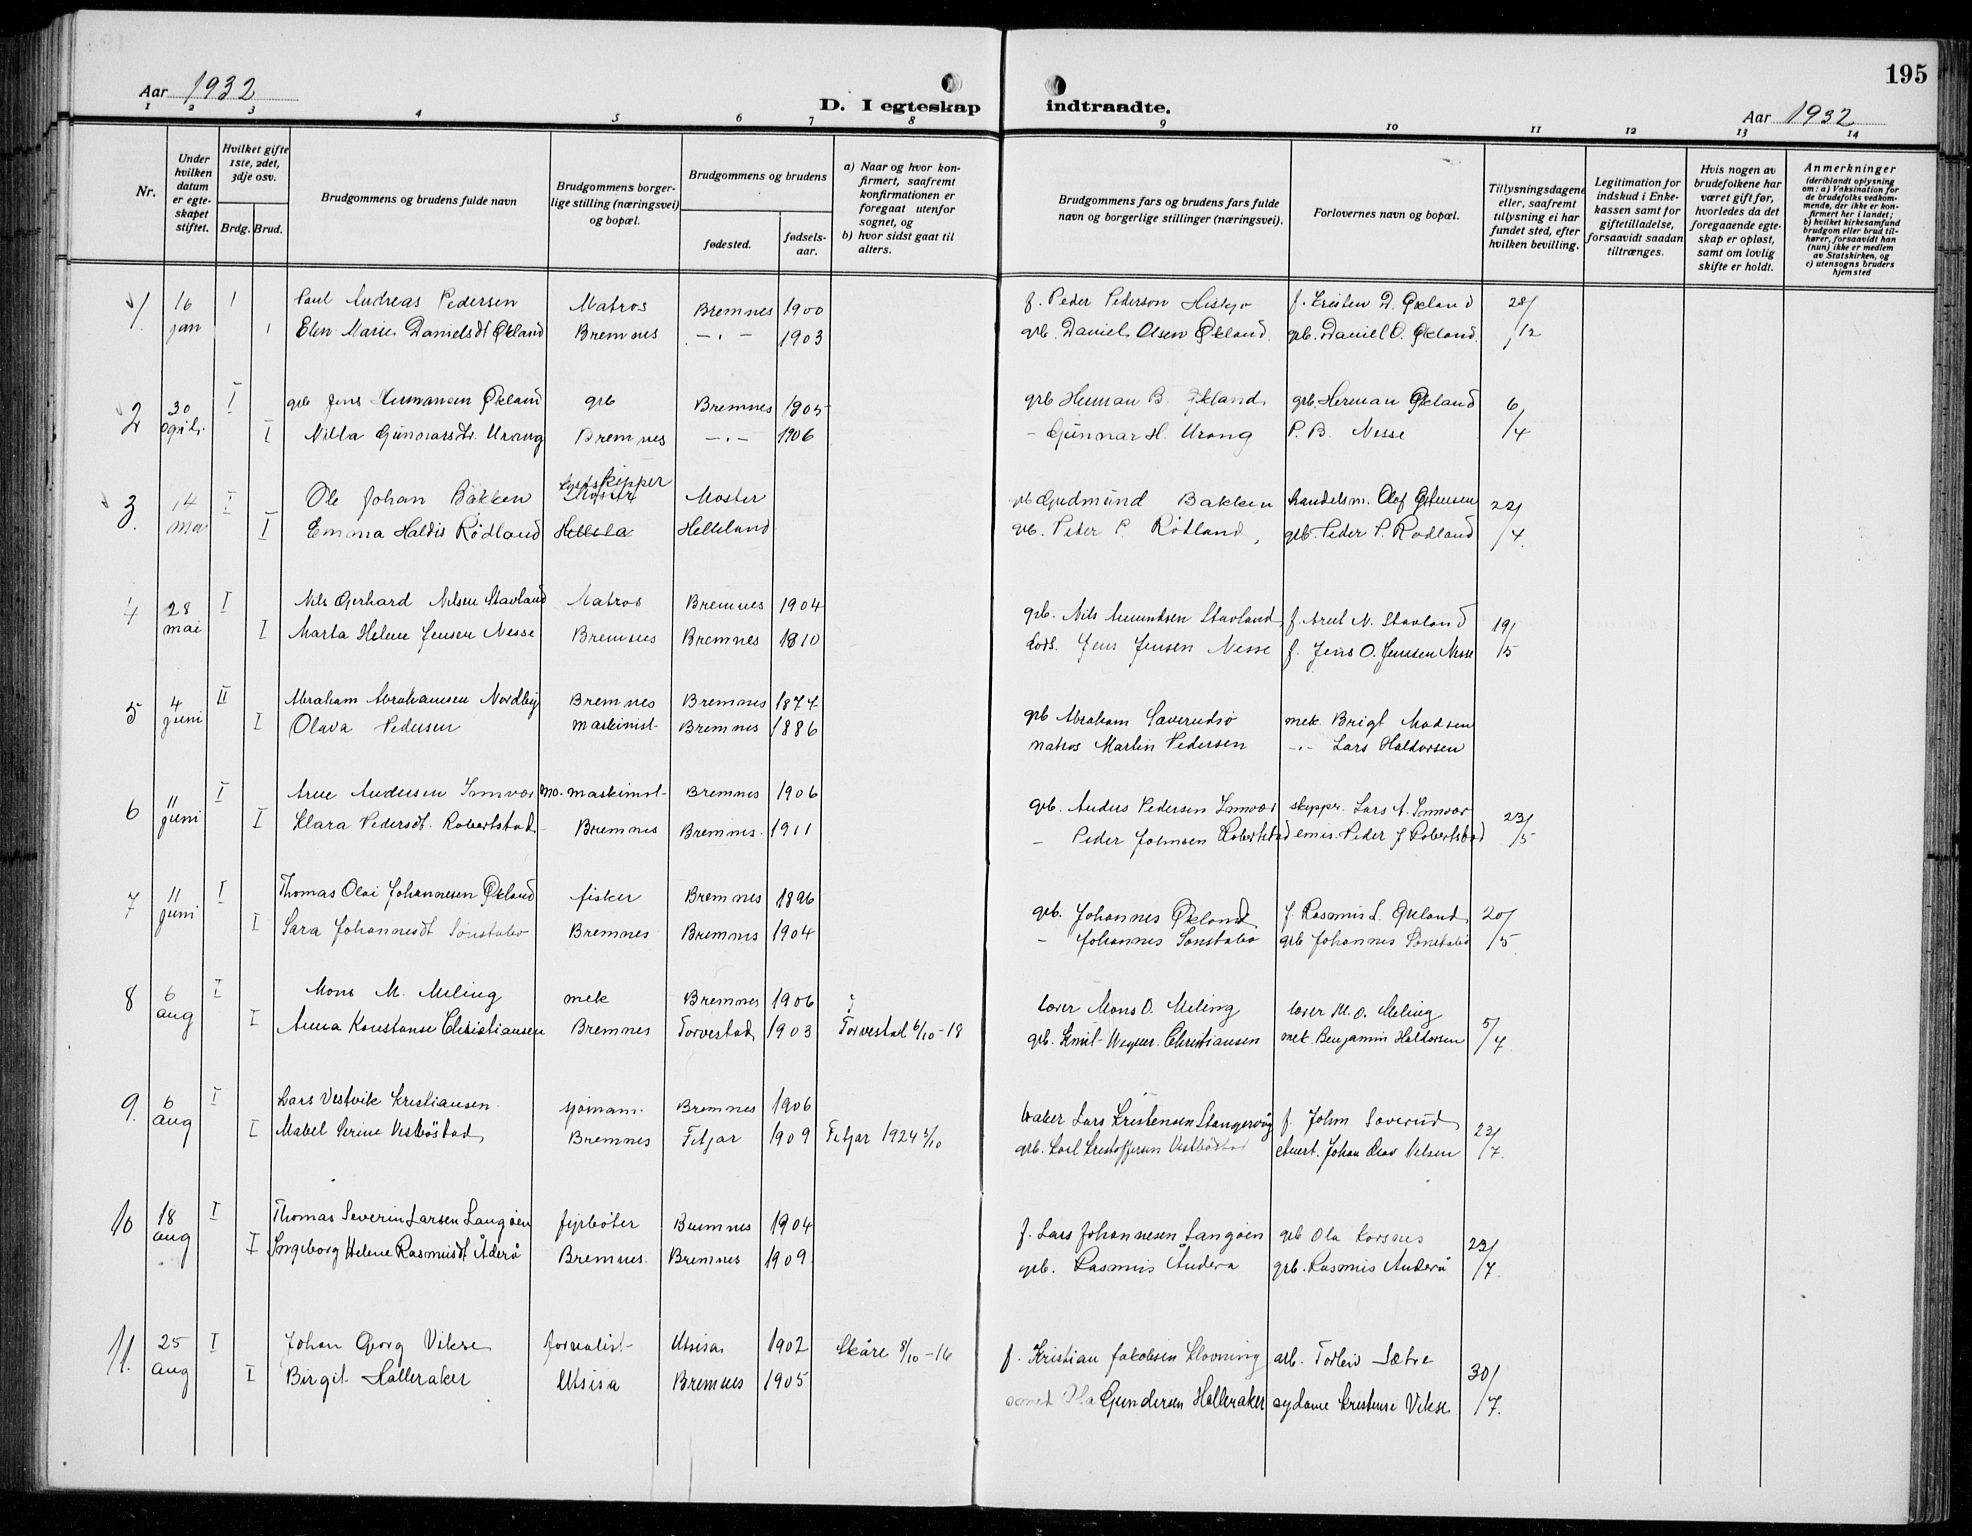 195
Aar 1932
D. I egteskap indtraadte.
Aar 1932
1 2 3 4 5 6 7 8 9 10 11 12 13 14
Nr.
Under hvilken datum er egteskapet stiftet.
Hvilket gifte 1ste, 2det, 3dje osv.
Brdg. Brud.
Brudgommens og brudens fulde navn
Brudgommens borgerlige stilling (næringsvei) og bopæl.
Brudgommens og brudens
fødested.
fødselsaar.
a) Naar og hvor konfirmert, saafremt konfirmationen er foregaat utenfor sognet, og
b) hvor sidst gaat til alters.
Brudgommens fars og brudens fars fulde navn og borgerlige stillinger (næringsvei).
Forlovernes navn og bopæl.
Tillysningsdagene eller, saafremt tillysning ei har fundet sted, efter hvilken bevilling.
Legitimation for indskud i Enkekassen samt for giftetilladelse, forsaavidt saadan tiltrænges.
Hvis nogen av brudefolkene har været gift før, hvorledes da det foregaaende egteskap er opløst, samt om lovlig skifte er holdt.
Anmerkninger (deriblandt oplysning om: a) Vaksination for de brudefolks vedkommende, der ikke er konfirmert her i landet; b) hvilket kirkesamfund brudgom eller brud tilhører, forsaavidt han (hun) ikke er medlem av Statskirken, og c) utensogns bruders hjemsted
1 16 I Paul Andreas Pedersen Matros Bremnes 1900 f. Peder Pederson f. D. Økland 28/
jan I Elen Marie Danielsdt Økland Bremnes -"- 1903 grb. Daniel Olsen Økland. grb. Daniel O. Økland. 12
2 30 I grb Jens Hermansen Økland grb Bremnes 1905 grb Herman B. Økland grb. Herman Økland 6
april. I Nilla Gunnarsdtr. Urang Bremnes -"- 1906 - Gunnar H. Urang P. B. Nesse /4
3 14 I Ole Johan Bakken skipper Moster grb Gudmund Bakken handelsm. Olof 22/
mai I Emma Haldis Rødland Helleland grb. Peder P. Rødland, grb. Peder P. Rødland /4.
4 28 I Nils Gerhard Nilsen Stavland Matros Bremnes 1904 grb. Nils Amundsen Stavland f. Arnt N. Stavland 19/
mai I Marta Helene Jensen Nesse Bremnes Bremnes 1910 lods. Jens Jensen Nesse f. Jens O. Jensen Nesse /5
5 4 II Abraham Abrahamsen Nordby Bremnes Bremnes 1874 grb Abraham mek. Brigt Madsen
juni I Olava Pedersen maskinist Bremnes 1886 matros Martin Pedersen -"- Lars Haldorsen
6 11 I Arne Andersen Innvær mo. maskinist Bremnes 1906 grb. Anders Pedersen Innvær skipper. Lars A. Innvær 23/
juni I Klara Pedersdt. Robertstad Bremnes Bremnes. 1911 - Peder Johnsen Robertstad Peder J Robertstad /5
7 11 I Thomas Olai Johannesen Økland fisker Bremnes 1896 grb. Johannes Økland f. Rasmus L. Økland 20/
juni I Sara Johannesdt Sønstabø Bremnes Bremnes 1904 - Johannes Sønstabø grb Johannes Sønstabø /5
8 6 I Mons M. Meling mek Bremnes 1906 lærer Mons O. Meling lærer M. O. Meling 5/
aug I Anna Konstanse Christiansen Bremnes Torvestad 1903 Torvestad 6/10-18 grb. Emil Christiansen mek. Benjamin Haldorsen /7
9. 6 I Lars Vestvik Kristiansen sjømann. Bremnes 1906 Lars Kristensen f. John 23/
aug I Mabel Serine Vestbøstad Bremnes Fitjar 1909 Fitjar 1924 5/10 grb. Karl Kristoffersen Vestbøstad Johan Olav Nilsen /7.
10 18 I Thomas Severin Larsen Langøen fyrbøter Bremnes 1904 f. Lars Johannesen Langøen grb Ola Korsnes 23/
aug I Ingeborg Helene Rasmusdt Åderø Bremnes. Bremnes 1909. grb. Rasmus Anderø grb. Rasmus Anderø /7.
11. 25 I Johan Georg Vikse Utsira 1902 Skåre 8/10-16 f. Kristian Jakobsen Klovning arb. Torleiv Sætre 30/
aug I Birgit Halleraker Utsira Bremnes 1905 Ola Gundersen Halleraker sydame Kristense Vikse 7.